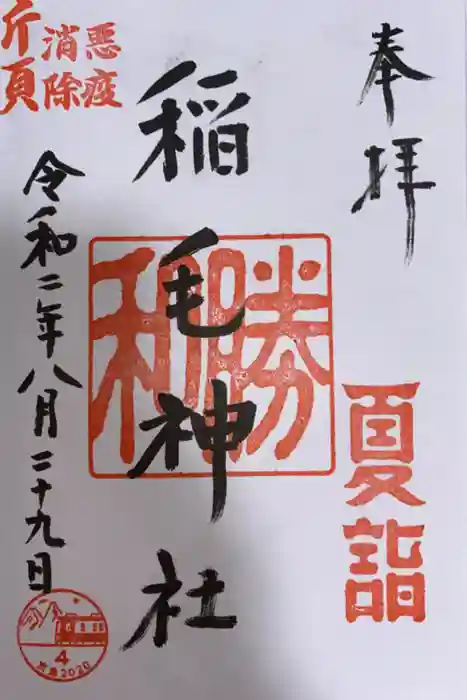 奉拝
夏詣
稲毛神社
勝
和
悪疫
消除
令和二年八月二十九日
4
2020